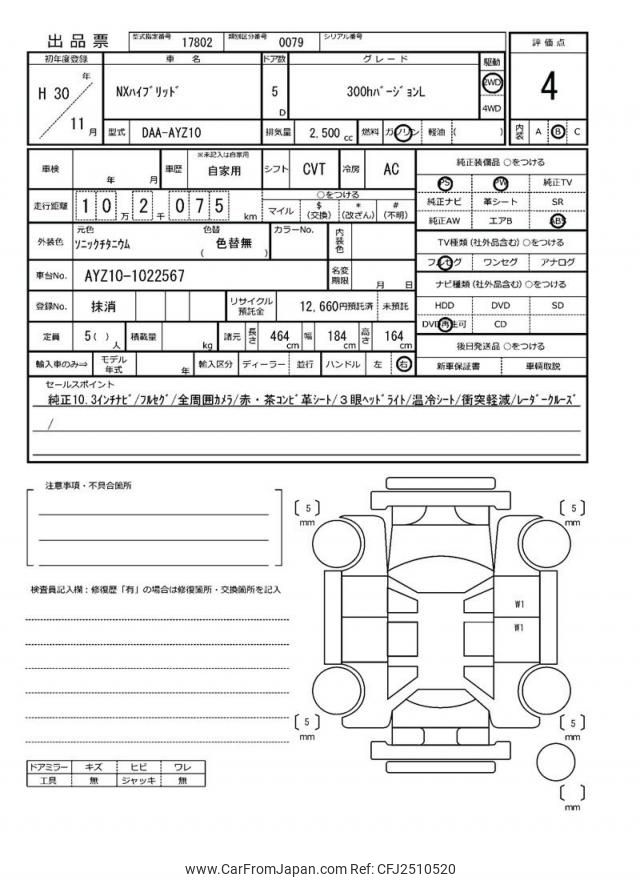 出品票 型式指定番号 17802 類別区分番号 0079 シリアル番号
評価点
初年度登録 車名 ドア数 グレード 駆動
H 30 年 11 月
NXハイブリッド 5 D 300hバージョンL 2WD 4WD
4
型式 DAA-AYZ10 排気量 2,500 cc 燃料 ガソリン 軽油 ( ) 内装 A B C
車検 年 月 車歴 ※未記入は自家用 自家用 シフト CVT 冷房 AC
純正装備品 ○をつける
PS PW 純正TV
走行距離 10万2千075 km
○をつける
マイル $(交換) *(改ざん) #(不明)
純正ナビ 革シート SR
純正AW エアB ABS
外装色 元色 ソニックチタニウム 色替 ( 色替無 ) カラーNo. 内装色
TV種類(社外品含む) ○をつける
フルセグ ワンセグ アナログ
車台No. AYZ10-1022567 名変期限 月 日
ナビ種類(社外品含む) ○をつける
登録No. 抹消 リサイクル預託金 12,660円預託済 未預託
HDD DVD SD
DVD再生可 CD
定員 5( ) 人 積載量 kg 諸元 長さ 464 cm 幅 184 cm 高さ 164 cm
後日発送品 ○をつける
輸入車のみ⇒ モデル年式 年 輸入区分 ディーラー 並行 ハンドル 左 右
新車保証書 車輌取説
セールスポイント
純正10.3インチナビ/フルセグ/全周囲カメラ/赤・茶コンビ革シート/3眼ヘッドライト/温冷シート/衝突軽減/レーダークルーズ
/
注意事項・不具合箇所
検査員記入欄：修復歴「有」の場合は修復箇所・交換箇所を記入
5 mm 5 mm
W1
W1
5 mm 5 mm
mm
ドアミラー キズ ヒビ ワレ
工具 無 ジャッキ 無
www.CarFromJapan.com Ref: CFJ2510520